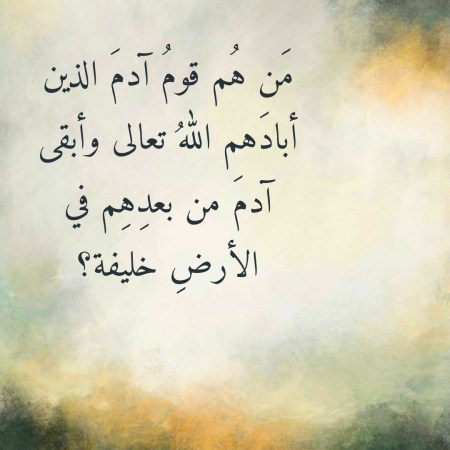 مَن هُم قومُ آدمَ الذين
أبادَهم اللهُ تعالى وأبقى
آدمَ من بعدِهِم في
الأرضِ خليفة؟